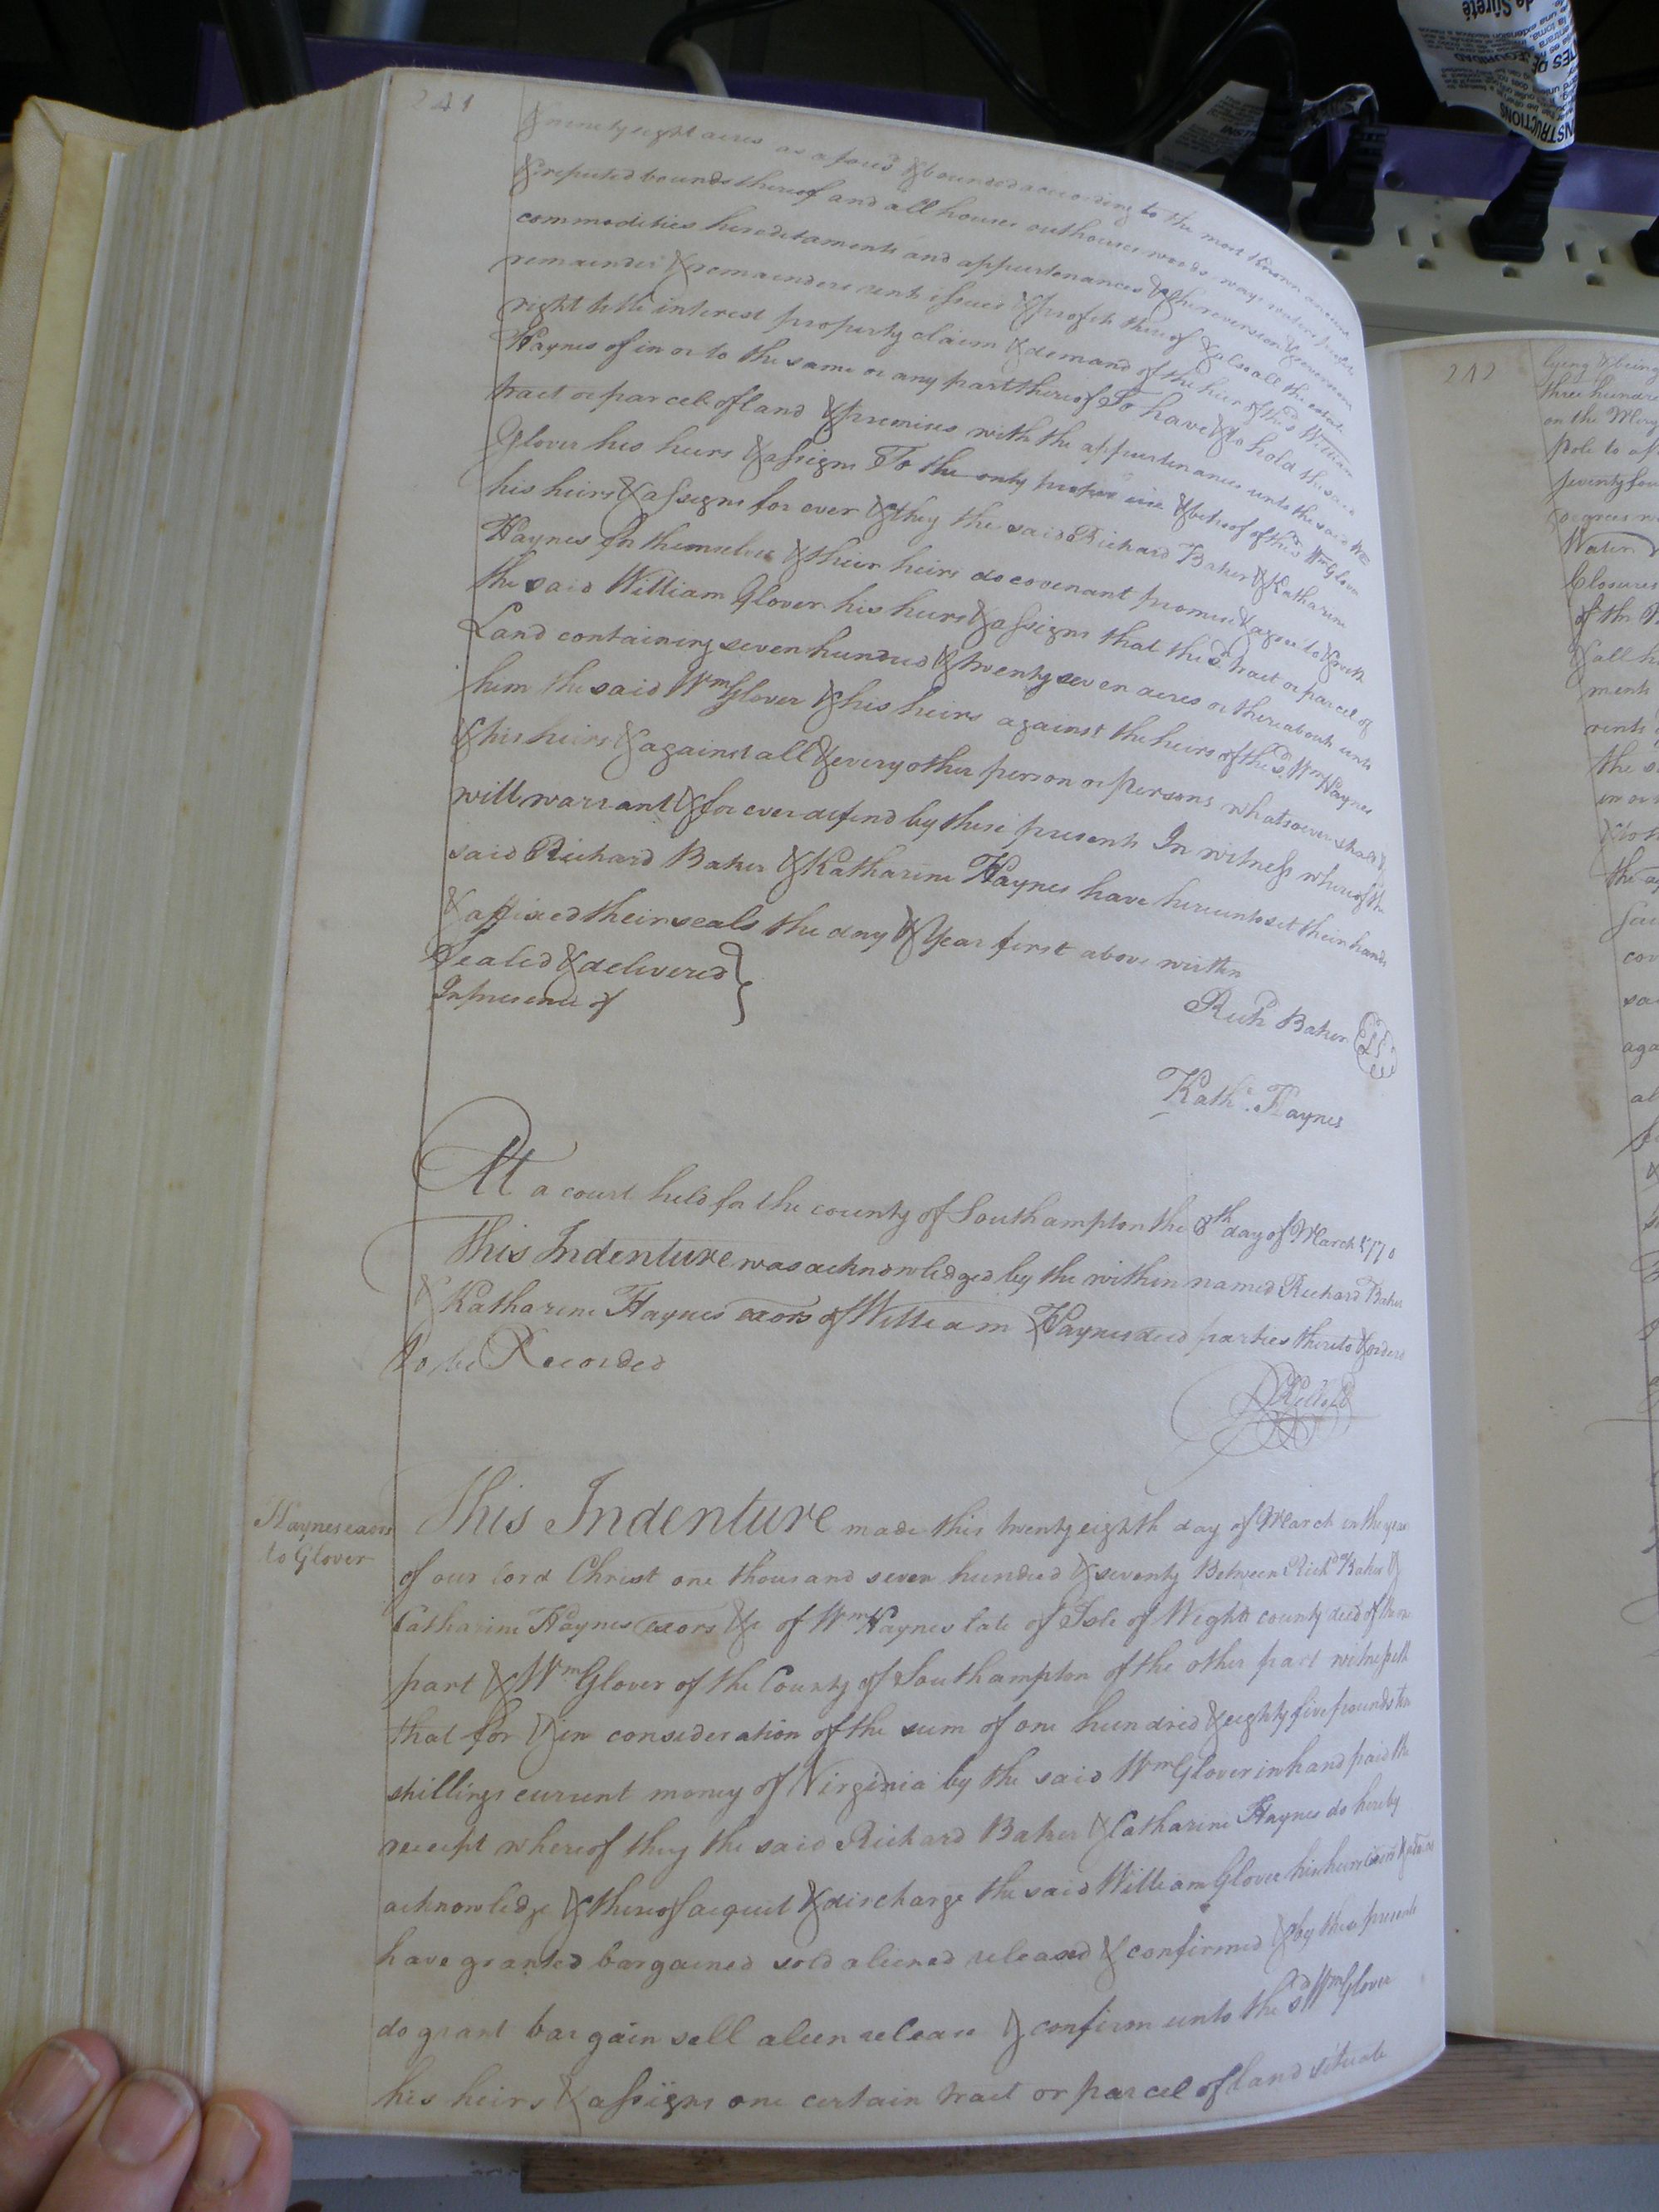 241
& ninety eight acres as afores.d & bounded according to the most known
& reputed bounds thereof and all houses outhouses woods ways waters
commodities hereditaments and appurtenances & the reversion & reversions
remainder & remainders rents issues & profits thereof & also all the estate
right title interest property claim & demand of the heir of the s.d William
Haynes of in or to the same or any part thereof To have & to hold the said
tract or parcel of land & premises with the appurtenances unto the said W.m
Glover his heirs & assigns To the only proper use & behoof of the s.d W.m Glover
his heirs & assigns for ever & they the said Richard Baker & Katharine
Haynes for themselves & their heirs do covenant promise & agree to & with
the said William Glover his heirs & assigns that the s.d tract or parcel of
Land containing seven hundred & twenty seven acres or thereabouts unto
him the said W.m Glover & his heirs against the heirs of the s.d W.m Haynes
& his heirs & against all & every other person or persons whatsoever shall &
will warrant & for ever defend by these presents In witness whereof the
said Richard Baker & Katharine Haynes have hereunto set their hands
& affixed their seals the day & Year first above written
Sealed & delivered }
In presence of
Rich.d Baker LS
Kath.e Haynes
At a court held for the county of Southampton the 8th day of March 1770
This Indenture was acknowledged by the within named Richard Baker
& Katharine Haynes exors of William Haynes decd parties thereto & orderd
to be Recorded
Haynes exors
to Glover
This Indenture made this twenty eighth day of March in the year
of our Lord Christ one thousand seven hundred & seventy Between Rich.d Baker &
Catharine Haynes exors &c of W.m Haynes late of Isle of Wight county decd of the one
part & W.m Glover of the County of Southampton of the other part witnesseth
that for & in consideration of the sum of one hundred & eighty five pounds ten
shillings current money of Virginia by the said W.m Glover in hand paid the
receipt whereof they the said Richard Baker & Catharine Haynes do hereby
acknowledge & thereof acquit & discharge the said William Glover his heirs exors &
have granted bargained sold aliened released & confirmed & by these presents
do grant bargain sell alien release & confirm unto the s.d W.m Glover
his heirs & assigns one certain tract or parcel of land situate
242
lying & being
three hundre
on the
Pole to
seventy four
degrees
Water
Closures
of the
& all h
ments
rents
the s
in or
the
said
cov
sa
aga
al